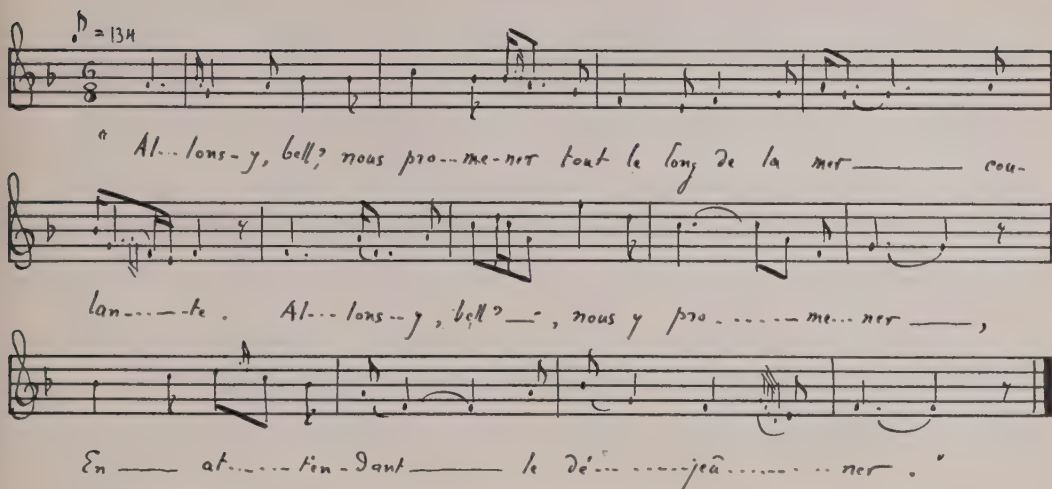 ♪ = 134
6
8
" Al...lons-y, bell', nous pro--me-ner tout le long de la mer ——— cou-
lan-----te. Al...lons--y, bell' —, nous y pro.------me...ner ——,
En —— at.....ten-dant ——— le dé.------jeû.------ner."